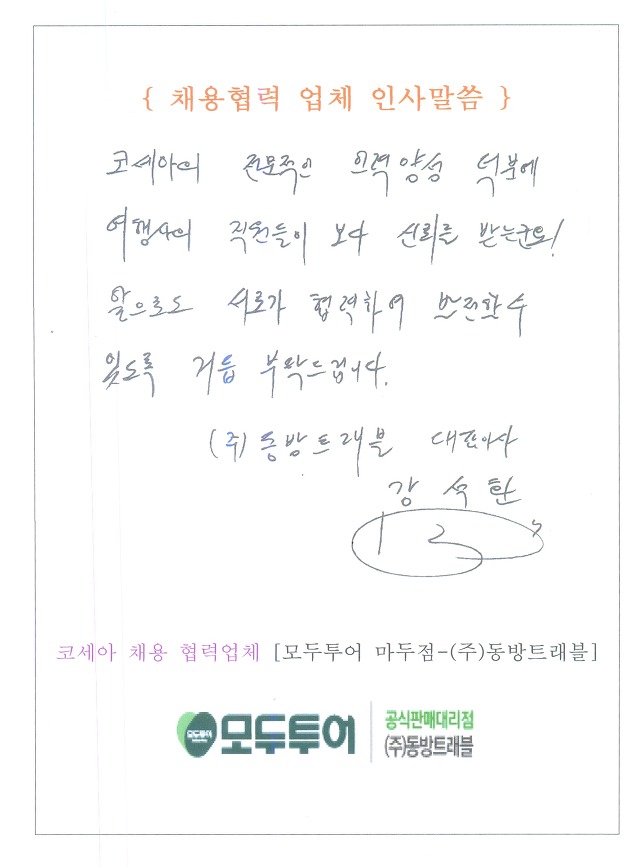 { 채용협력 업체 인사말씀 }
코세아의 전문적인 인력양성 덕분에
여행사의 직원들이 보다 신뢰를 받는군요!
앞으로도 서로가 협력하여 발전할 수
있도록 거듭 부탁드립니다.
(주)동방트래블 대표이사
강석환
코세아 채용 협력업체 [모두투어 마두점-(주)동방트래블]
모두투어 모두투어 공식판매대리점
(주)동방트래블